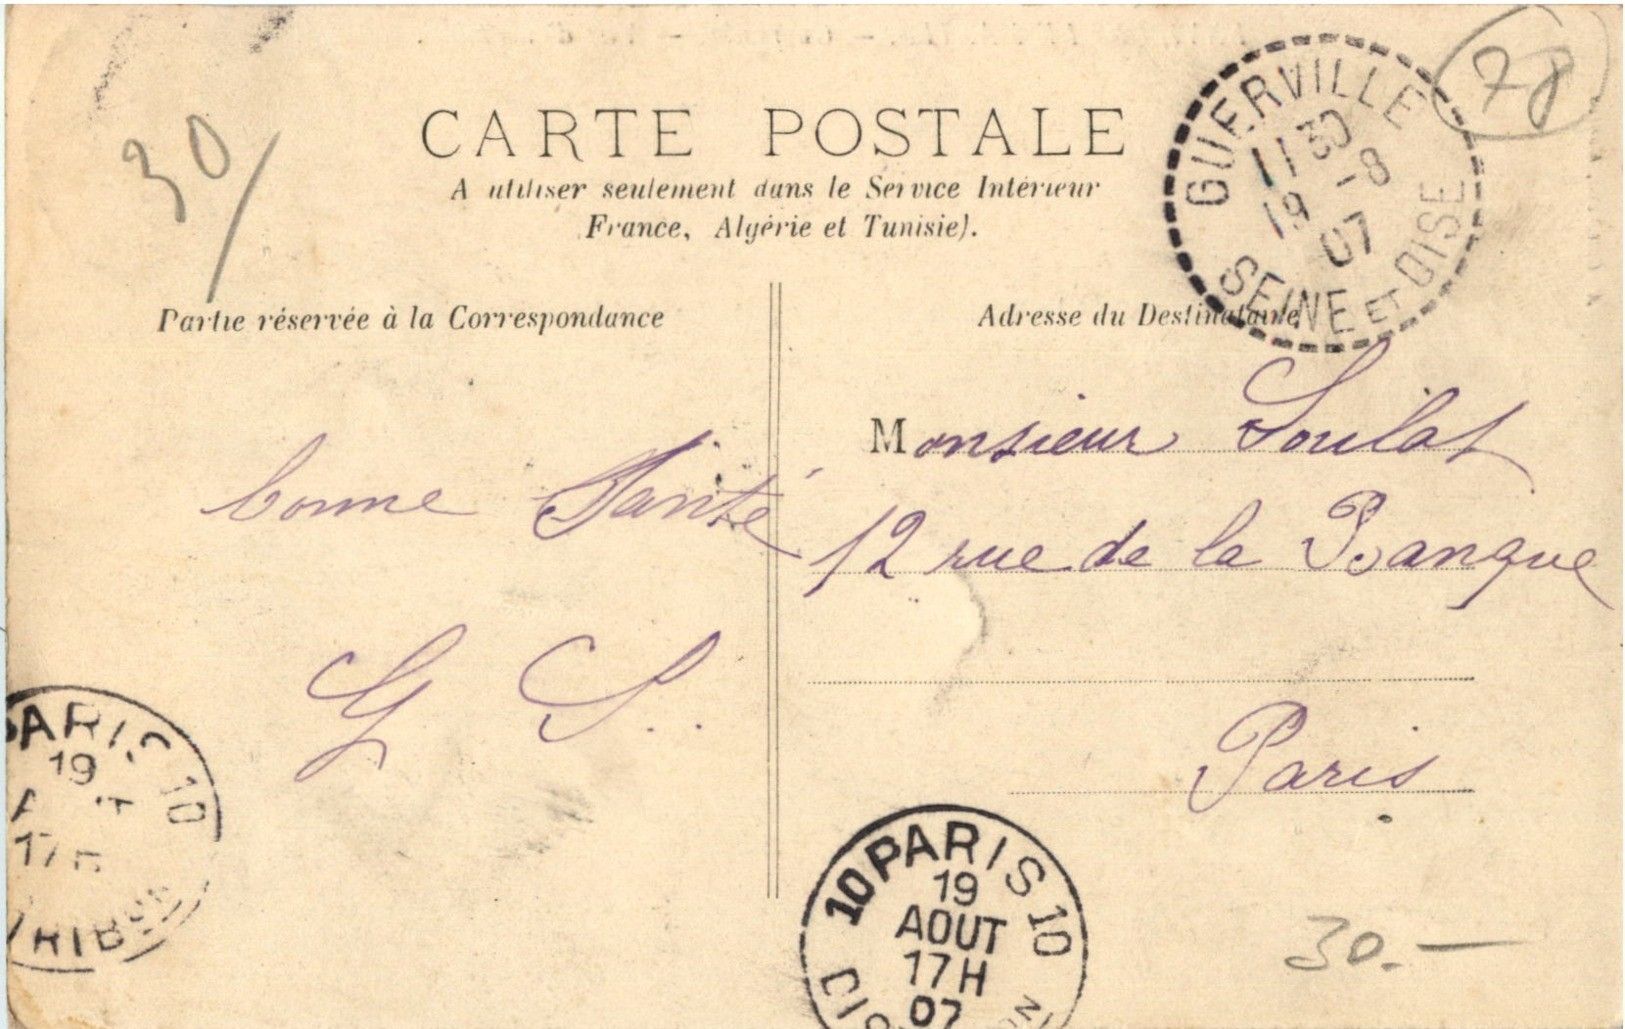 78
30/
GUERVILLE
11 30
19 - 8
07
SEINE ET OISE
CARTE POSTALE
A utiliser seulement dans le Service Intérieur
France, Algérie et Tunisie).
Partie réservée à la Correspondance
Adresse du Destinataire
Monsieur Soulat
12 rue de la Banque
Paris
bonne Santé
G S..
PARIS 10
19
17 H
TRIB
10 PARIS 10
19
AOUT
17H
07
30.-